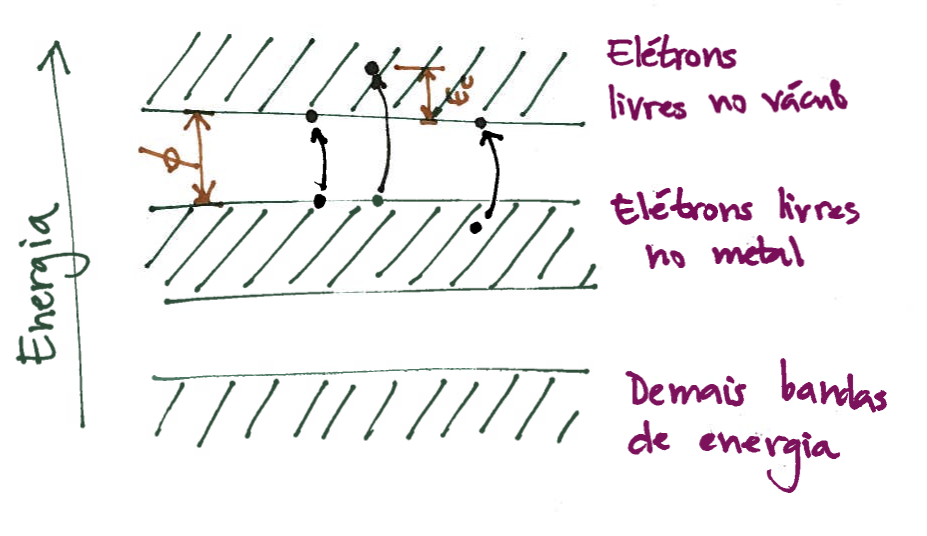 Elétrons
livres no vácuo
Ec
ϕ
Elétrons livres
no metal
Energia
Demais bandas
de energia